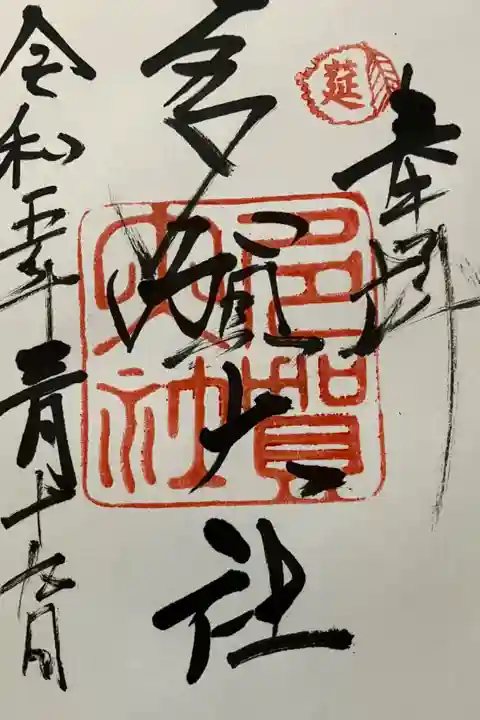 莚
奉拝
多賀大社
多賀大社
令和五年三月十九日